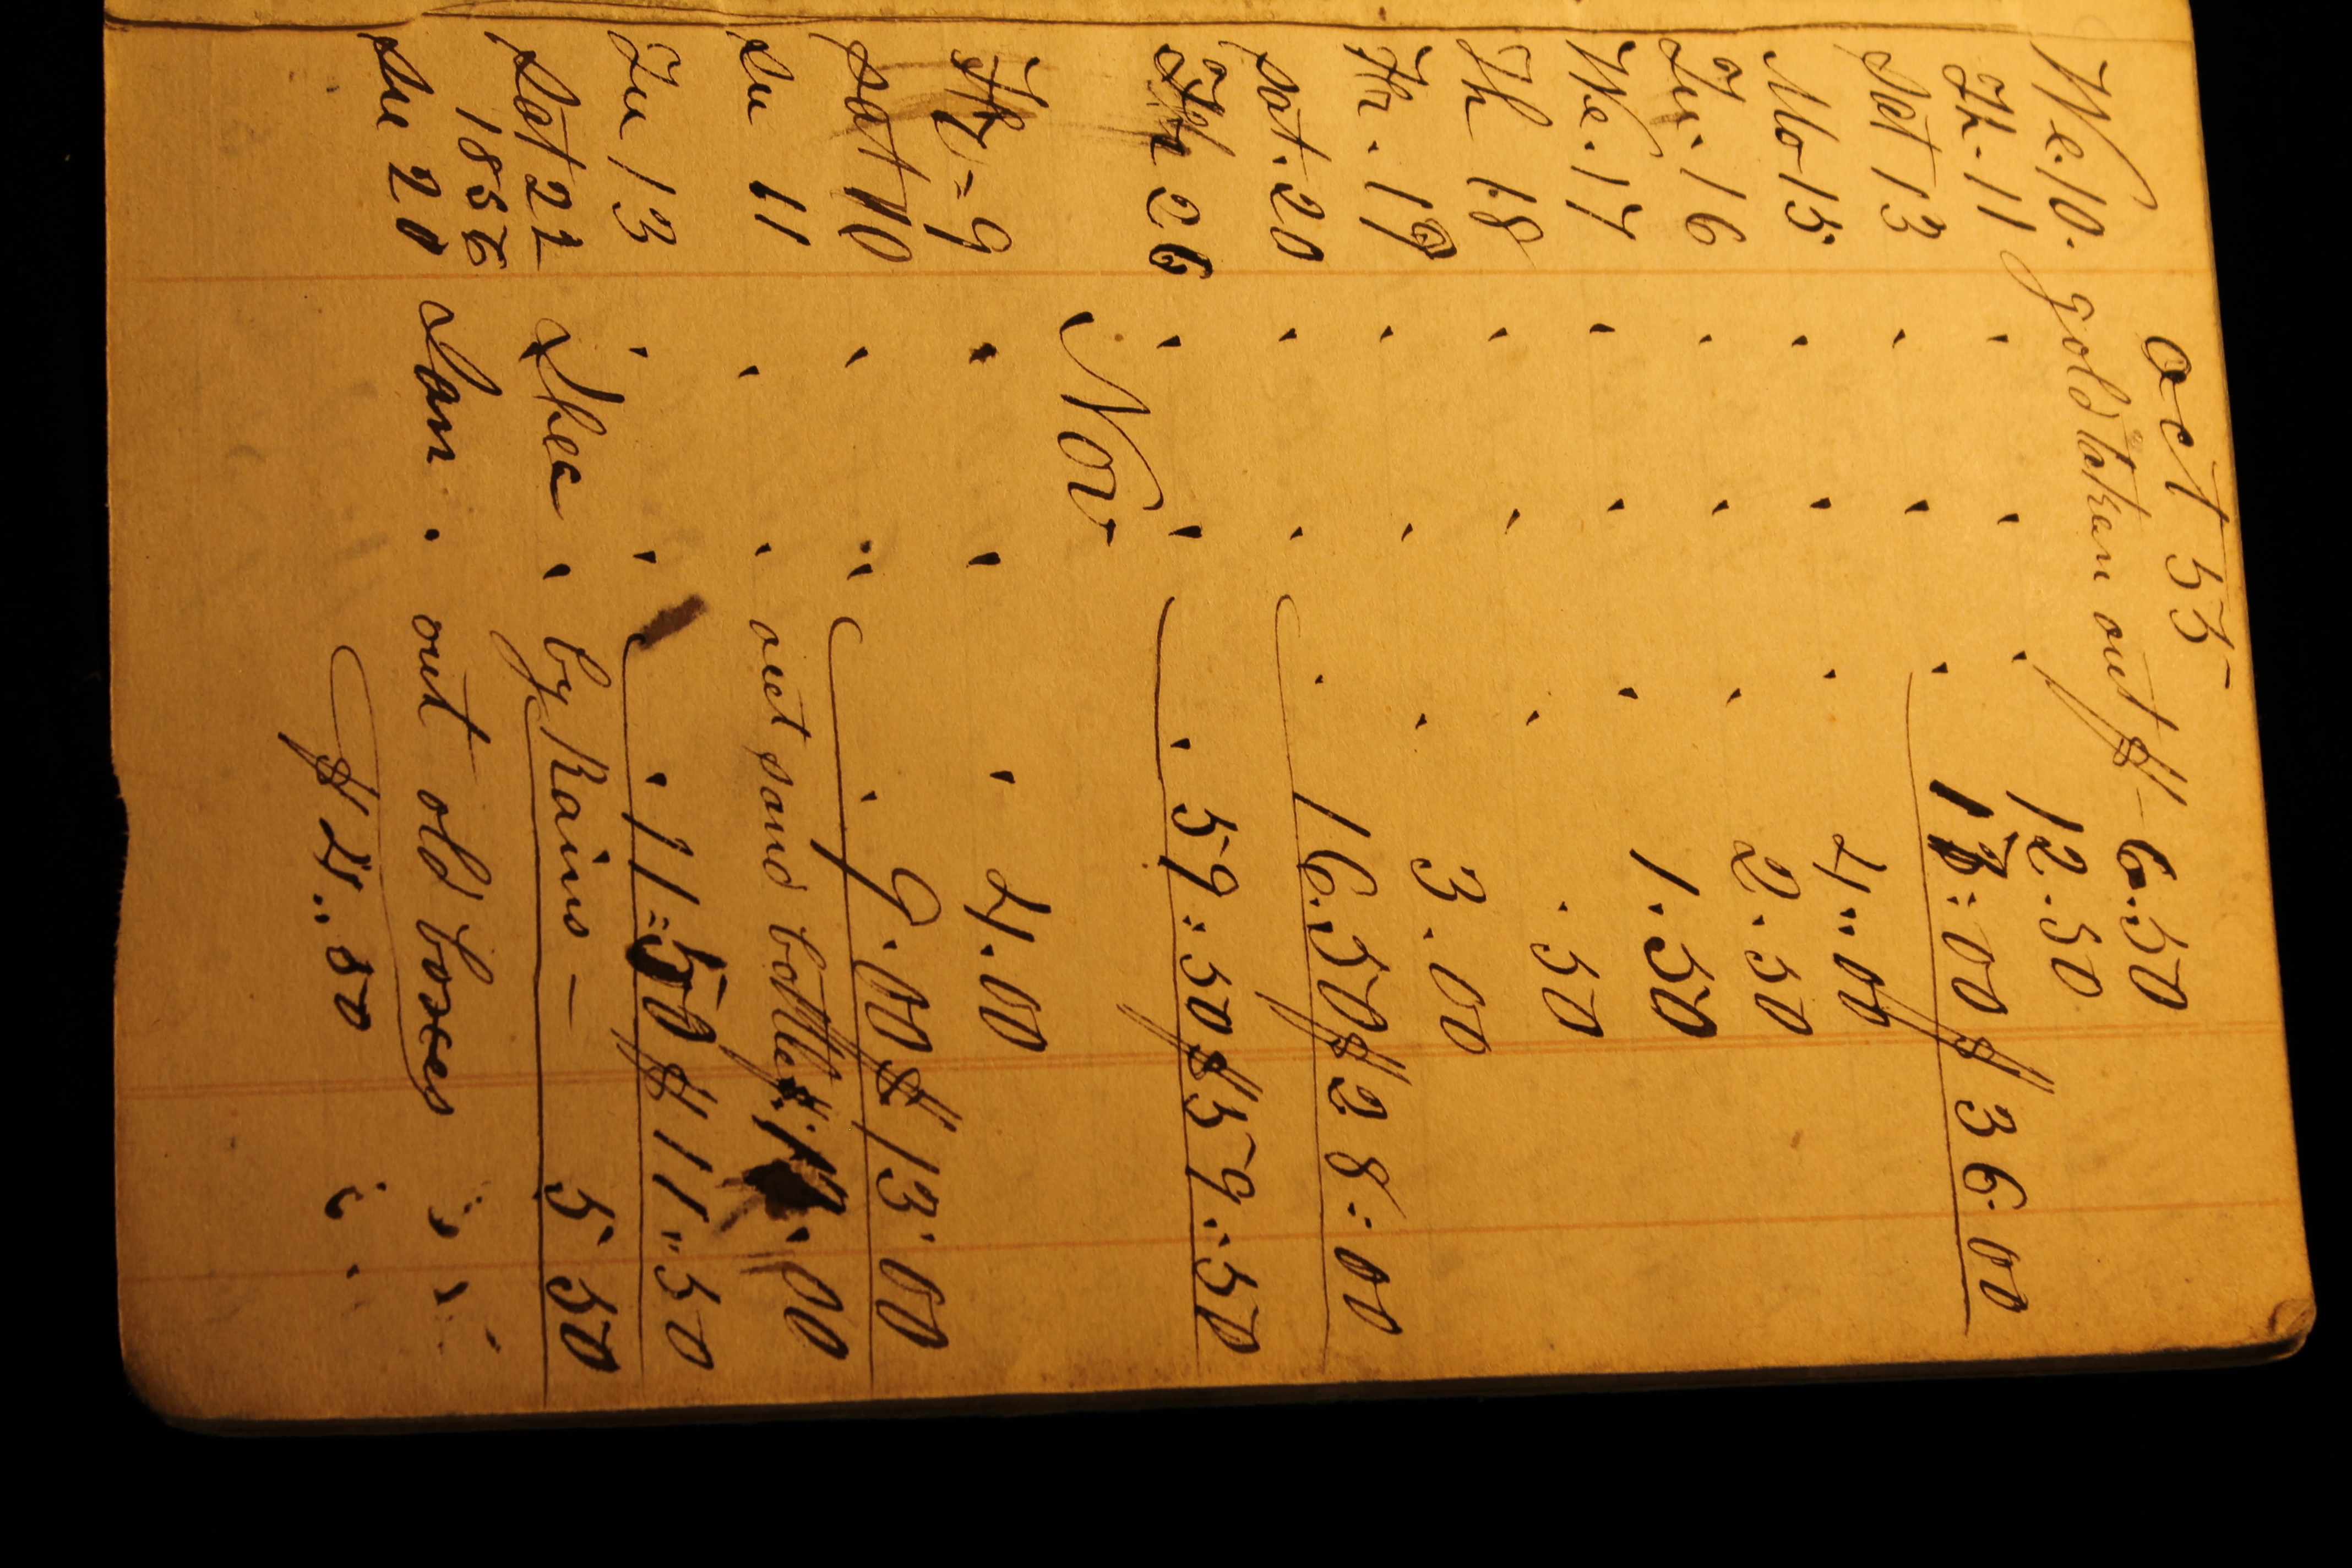 oct 55
We. 10. gold taken out $ - 6.50
Th - 11 " " " 12.50
Sat 13 " " " 17:00 $ 36.00
Mo 15 " " " 4..00
Tu. 16 " " " 2.50
We. 17 " " " 1.50
Th 18 " " " .50
Fr. 19 " " " 3.00
Sat. 20 " " " 16.50 $ 28:00
Fr 26 " " " 59:50 $ 59:50
Nov
Fr = 9 " " " 4.00
Sat 10 " " " 9.00 $ 13.00
Su 11 " " out sand bottle $ .00
Tu 13 " " " 11=50 $ 11..50
Sat 22 Dec " by Rains — 5 50
1856
Su 20 Jan . out old boxes
$ 4..50